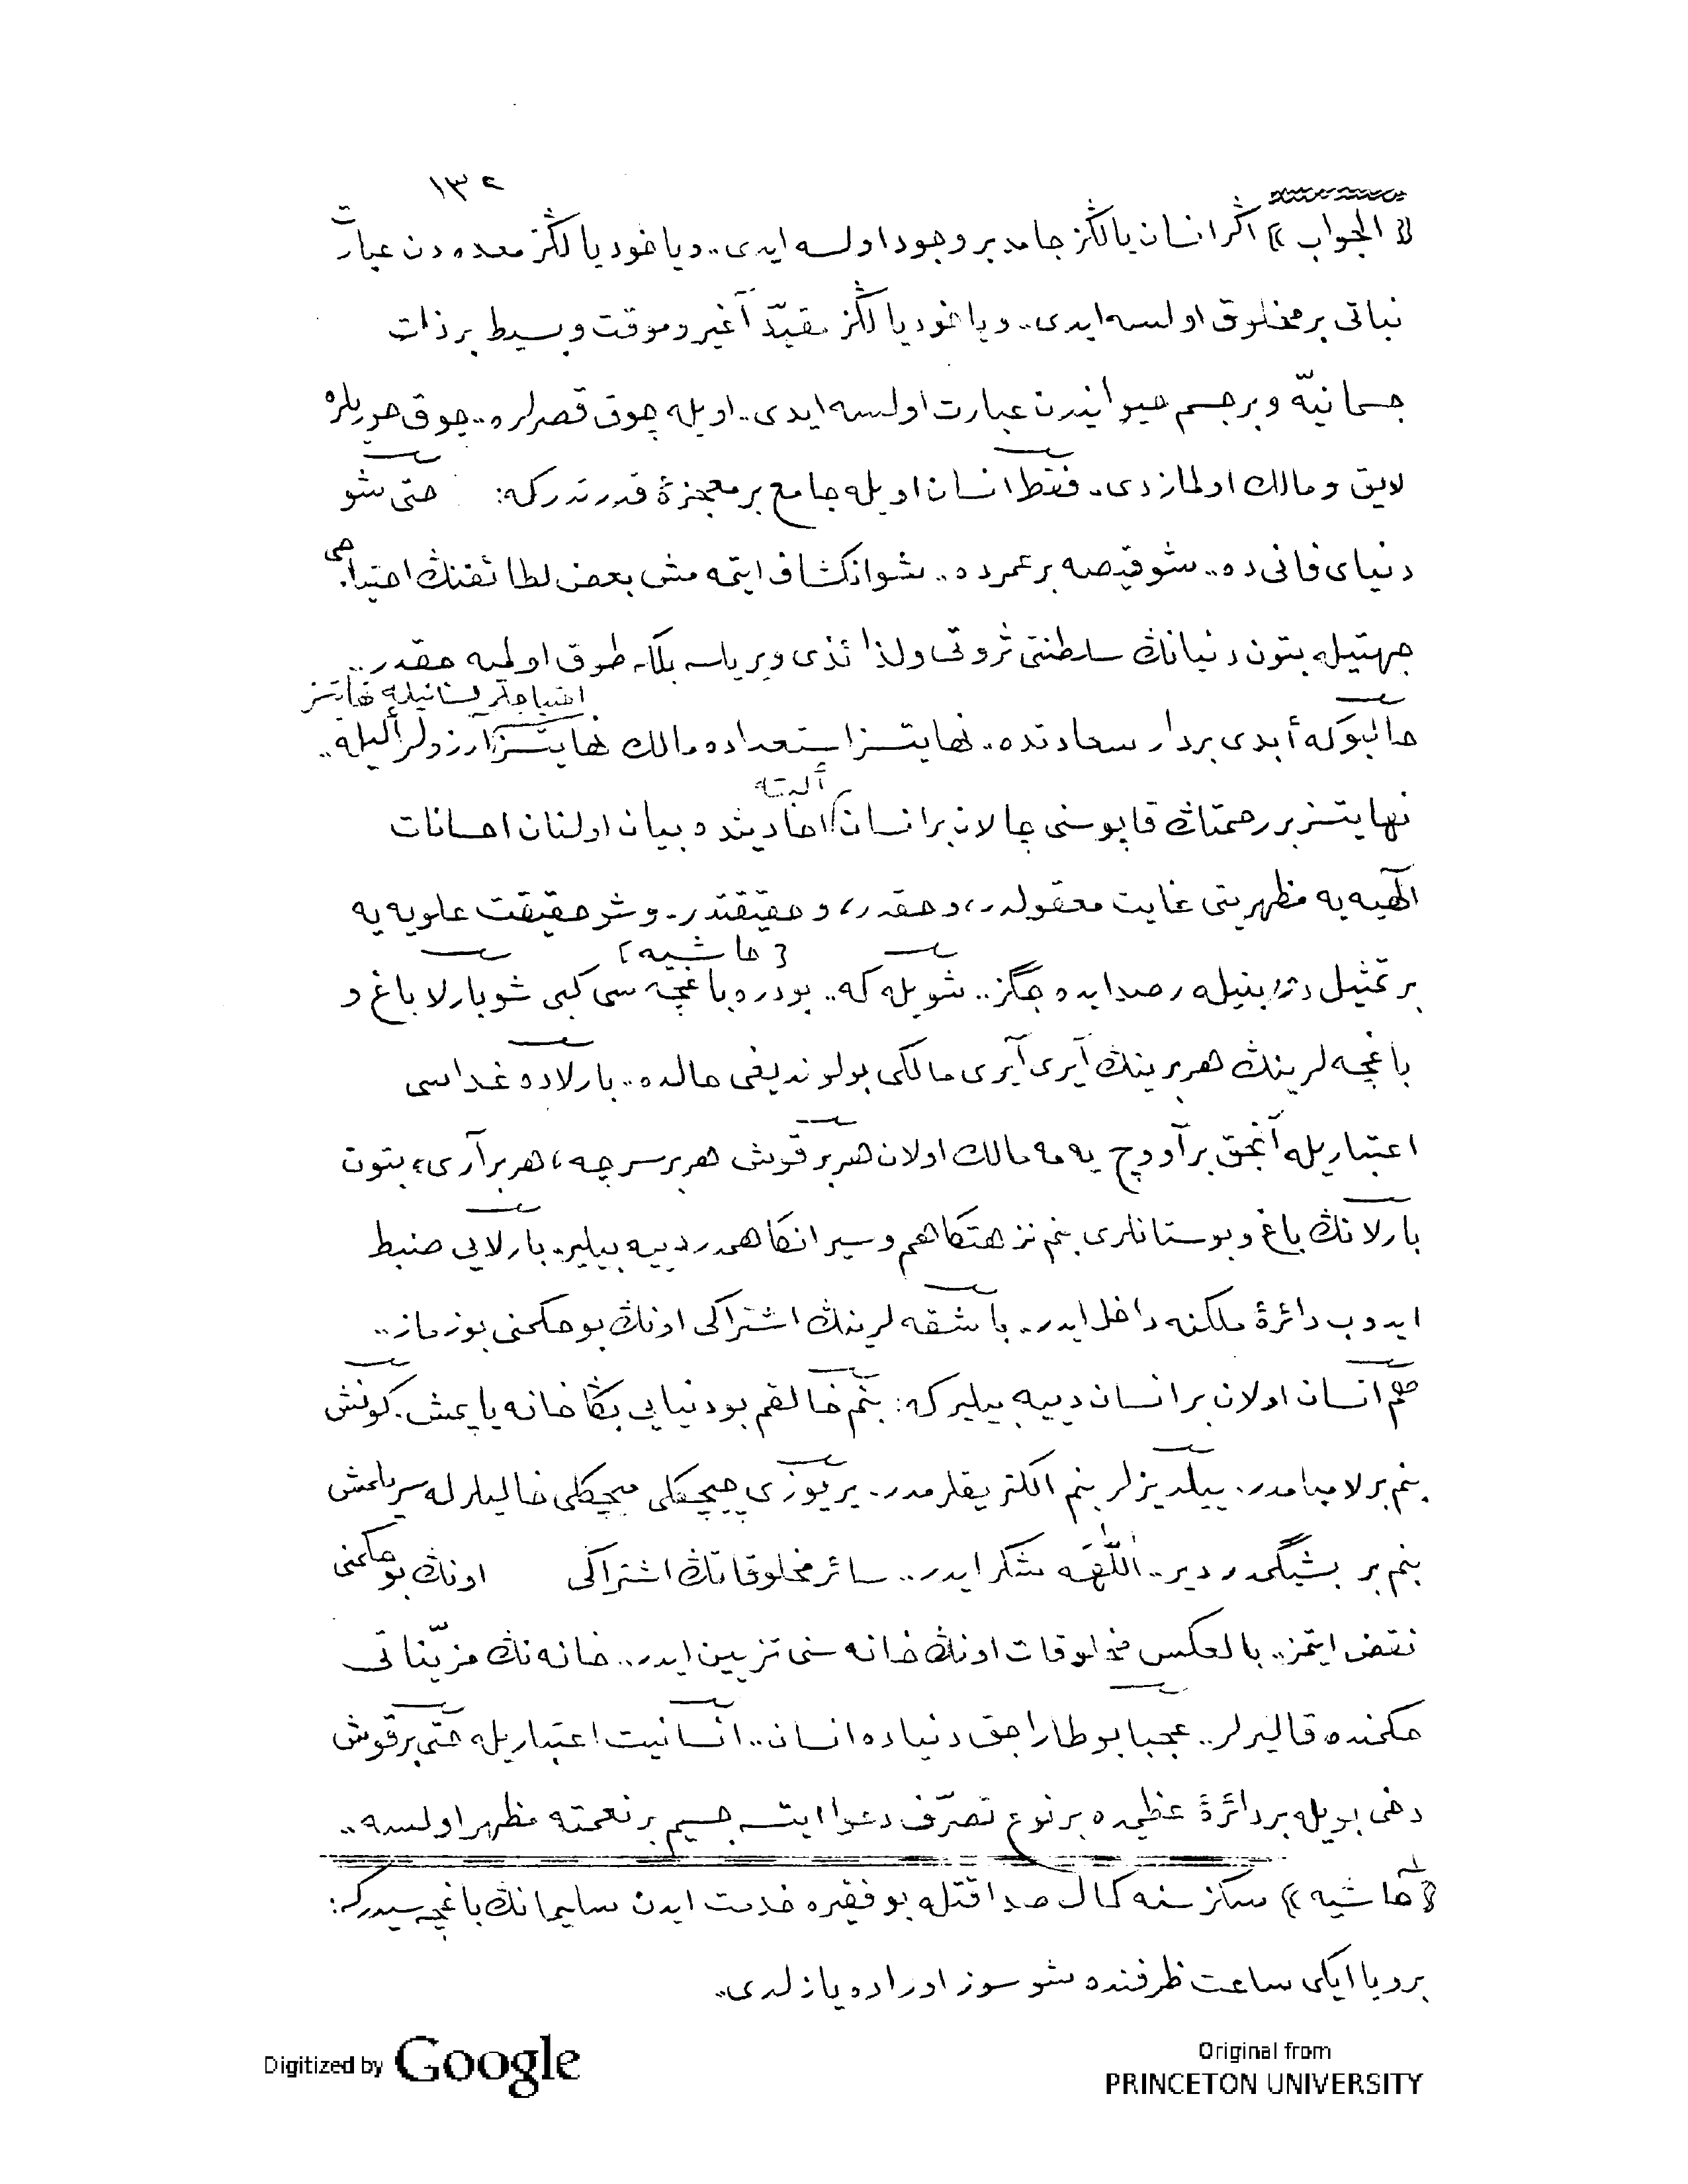 ١٣٢
﴿ الجواب ﴾ اگر انسان يالڭز جامد بر وجود اولسه ايدى.. وياخود يالڭز معده دن عبارت
نباتى بر مخلوق اولسه ايدى.. وياخود يالڭز مقيّد آغير وموقت وبسيط بر ذات
جسمانيّه وبر جسم حيوانيدن عبارت اولسه ايدى.. اويله چوق قصرلره.. چوق حوريلره
لايق ومالك اولمازدى. فقط انسان اويله جامع بر معجزۀ قدرتدركه: حتى شو
دنياى فانى ده.. شو قيصه بر عمرده.. شو انكشاف ايتمه مش بعض لطائفنڭ احتياجى
جهتيله بتون دنيانڭ سلطنتى ثروتى ولذائذى ويريلسه بلكه طوق اولميه جقدر..
احتياجلر لسانيله نهايتسز
حالبوكه أبدى بر دار سعادتده.. نهايتسز استعداده مالك نهايتسز آرزولر أليله..
ألبته
نهايتسز بر رحمتڭ قاپوسنى چالان بر انسان احاديثده بيان اولنان احسانات
الٓهيه يه مظهريتى غايت معقولدر، وحقدر، وحقيقتدر. وشو حقيقت علويه يه
﴿ حاشيه ﴾
بر تمثيل دوربينيله رصد ايده جگز.. شويله كه.. بو دره باغچه سى كبى شو بارلا باغ و
باغچه لرينڭ هر برينڭ آيرى آيرى مالكى بولونديغى حالده.. بارلاده غداسى
اعتباريله آنجق بر آووچ يه مه مالك اولان هر بر قوش هر بر سرچه، هر بر آرى، بتون
بارلانڭ باغ وبوستانلرى بنم نزهتگاهم وسيرانگاهمدر دييه بيلير. بارلايى ضبط
ايدوب دائرۀ ملكنه داخل ايدر.. باشقه لرينڭ اشتراكى اونڭ بو حكمنى بوزماز..
هم انسان اولان بر انسان دييه بيلير كه: بنم خالقم بو دنيايى بڭا خانه ياپمش. كونش
بنم بر لامبامدر. ييلديزلر بنم الكتريقلرمدر. ير يوزى چيچكلى ميچكلى خاليلرله سريلمش
بنم بر بشيگمدر دير.. اللّٰهه شكر ايدر.. سائر مخلوقاتڭ اشتراكى اونڭ بو حكمنى
نقض ايتمز.. بالعكس مخلوقات اونڭ خانه سنى تزيين ايدر.. خانه نڭ مزيّناتى
حكمنده قاليرلر.. عجبا بو طاراجق دنياده انسان.. انسانيت اعتباريله حتى بر قوش
دخى بويله بر دائرۀ عظيمه ده بر نوع تصرّف دعوا ايتسه جسيم بر نعمته مظهر اولسه..
﴿ حاشيه ﴾ سكز سنه كمال صداقتله بو فقيره خدمت ايدن سليمانڭ باغچه سيدركه:
بر ويا ايكى ساعت ظرفنده شو سوز اوراده يازلدى..
Digitized by Google
Original from
PRINCETON UNIVERSITY